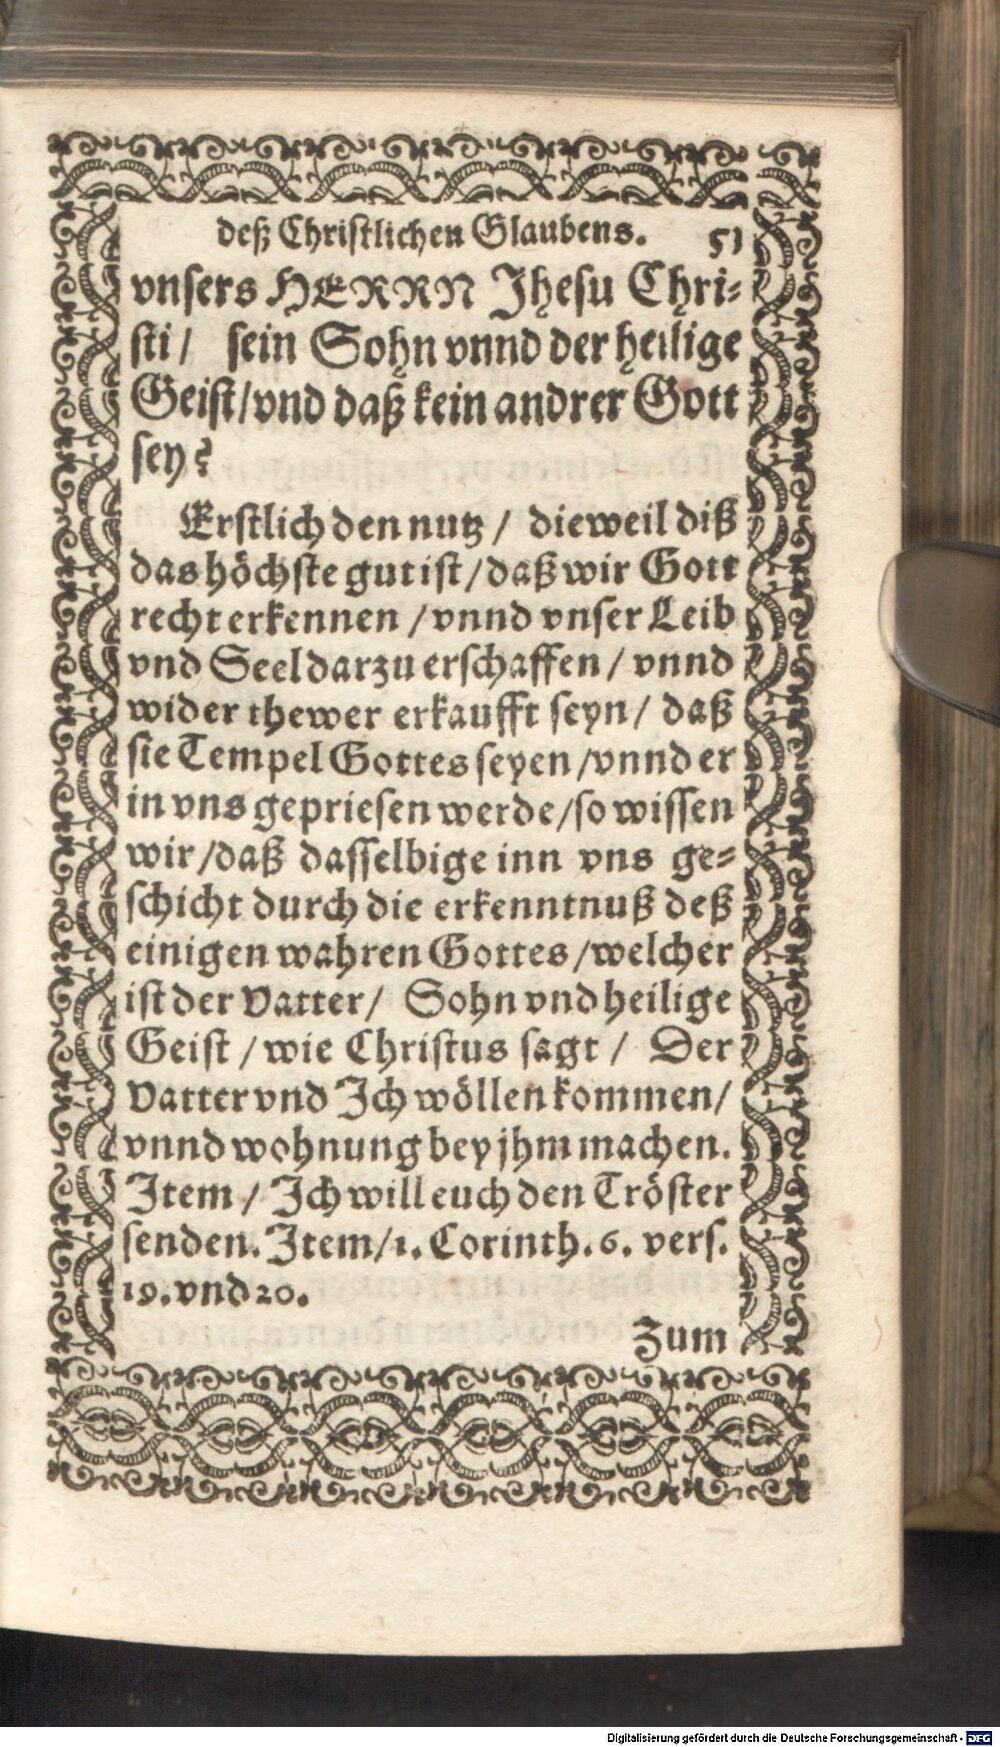 deß Christlichen Glaubens. 51
vnsers HERRN Jhesu Chri-
sti / sein Sohn vnnd der heilige
Geist / vnd daß kein andrer Gott
sey?
Erstlich den nutz / dieweil diß
das höchste gut ist / daß wir Gott
recht erkennen / vnnd vnser Leib
vnd Seel darzu erschaffen / vnnd
wider thewer erkaufft seyn / daß
sie Tempel Gottes seyen / vnnd er
in vns gepriesen werde / so wissen
wir / daß dasselbige inn vns ge-
schicht durch die erkenntnuß deß
einigen wahren Gottes / welcher
ist der Vatter / Sohn vnd heilige
Geist / wie Christus sagt / Der
Vatter vnd Ich wöllen kommen /
vnnd wohnung bey jhm machen.
Item / Ich will euch den Tröster
senden. Item / 1. Corinth. 6. vers.
19. vnd 20.
Zum
Digitalisierung gefördert durch die Deutsche Forschungsgemeinschaft - DFG